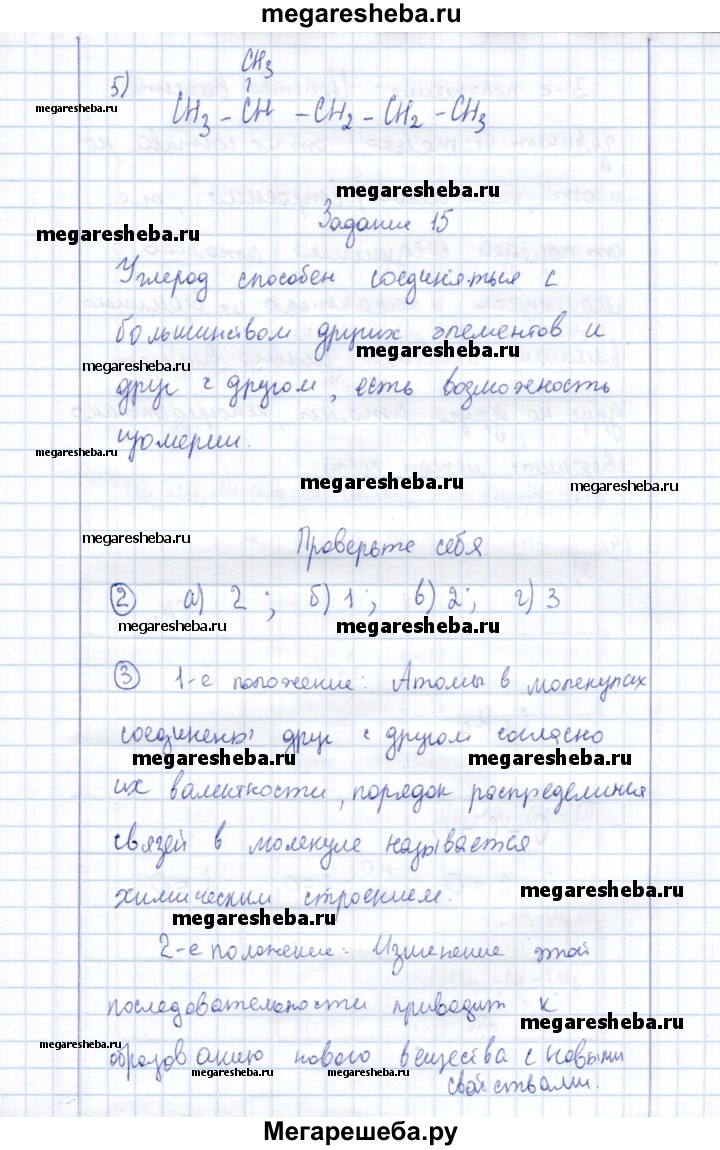 megaresheba.ru
CH3
5)
megaresheba.ru
CH3 - CH - CH2 - CH2 - CH3
megaresheba.ru
Задание 15
megaresheba.ru
Углерод способен соединяться с
большинством других элементов и
megaresheba.ru
megaresheba.ru
друг с другом, есть возможность
изомерии.
megaresheba.ru
megaresheba.ru
megaresheba.ru
megaresheba.ru
Проверьте себя
2 а) 2; б) 1; в) 2; г) 3
megaresheba.ru
megaresheba.ru
3 1-е положение: Атомы в молекулах
соединены друг с другом согласно
megaresheba.ru
megaresheba.ru
их валентности, порядок распределения
связей в молекуле называется
химическим строением.
megaresheba.ru
megaresheba.ru
2-е положение: Изменение этой
последовательности приводит к
megaresheba.ru
megaresheba.ru
образованию нового вещества с новыми
megaresheba.ru
megaresheba.ru
свойствами.
Мегарешеба.ру